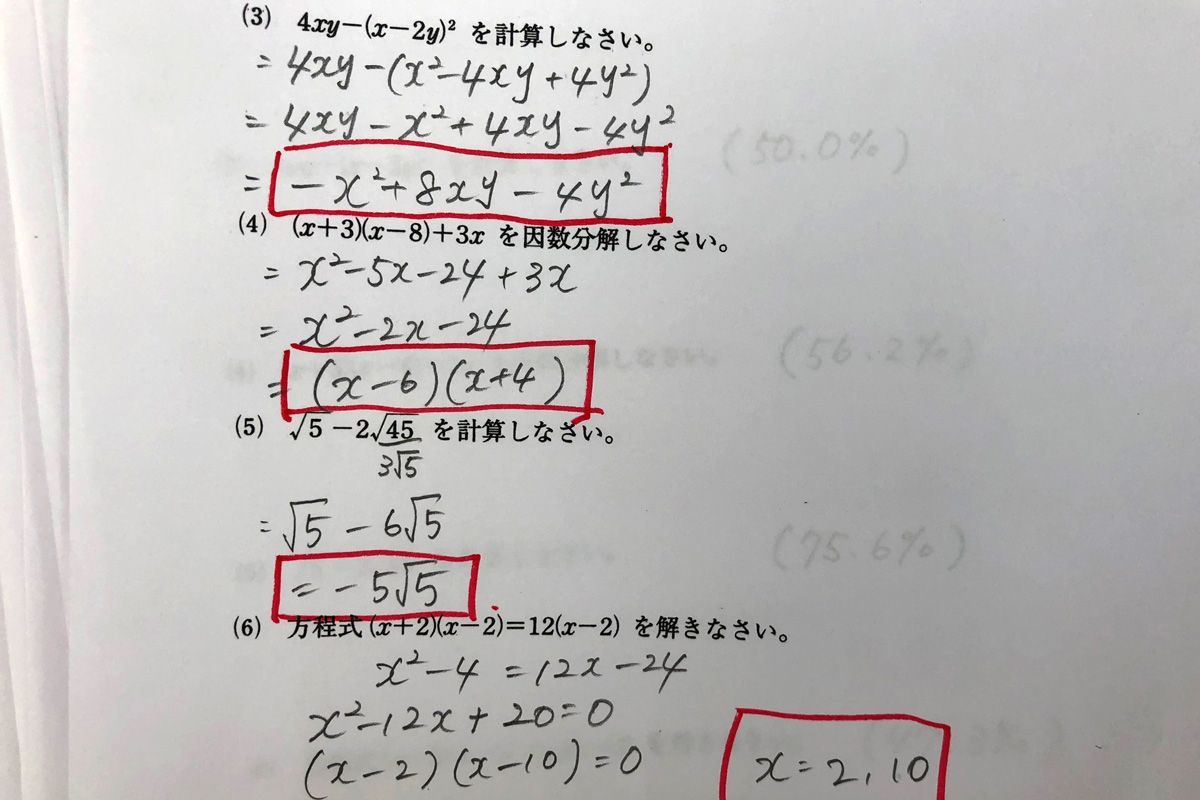 (3) 4xy−(x−2y)² を計算しなさい。
= 4xy−(x²−4xy+4y²)
= 4xy−x²+4xy−4y²
(50.0%)
= −x²+8xy−4y²
(4) (x+3)(x−8)+3x を因数分解しなさい。
= x²−5x−24+3x
= x²−2x−24
(56.2%)
= (x−6)(x+4)
(5) √5−2√45 を計算しなさい。
3√5
= √5−6√5
(75.6%)
= −5√5
(6) 方程式(x+2)(x−2)=12(x−2) を解きなさい。
x²−4 = 12x−24
x²−12x+20=0
(x−2)(x−10)=0
x=2,10